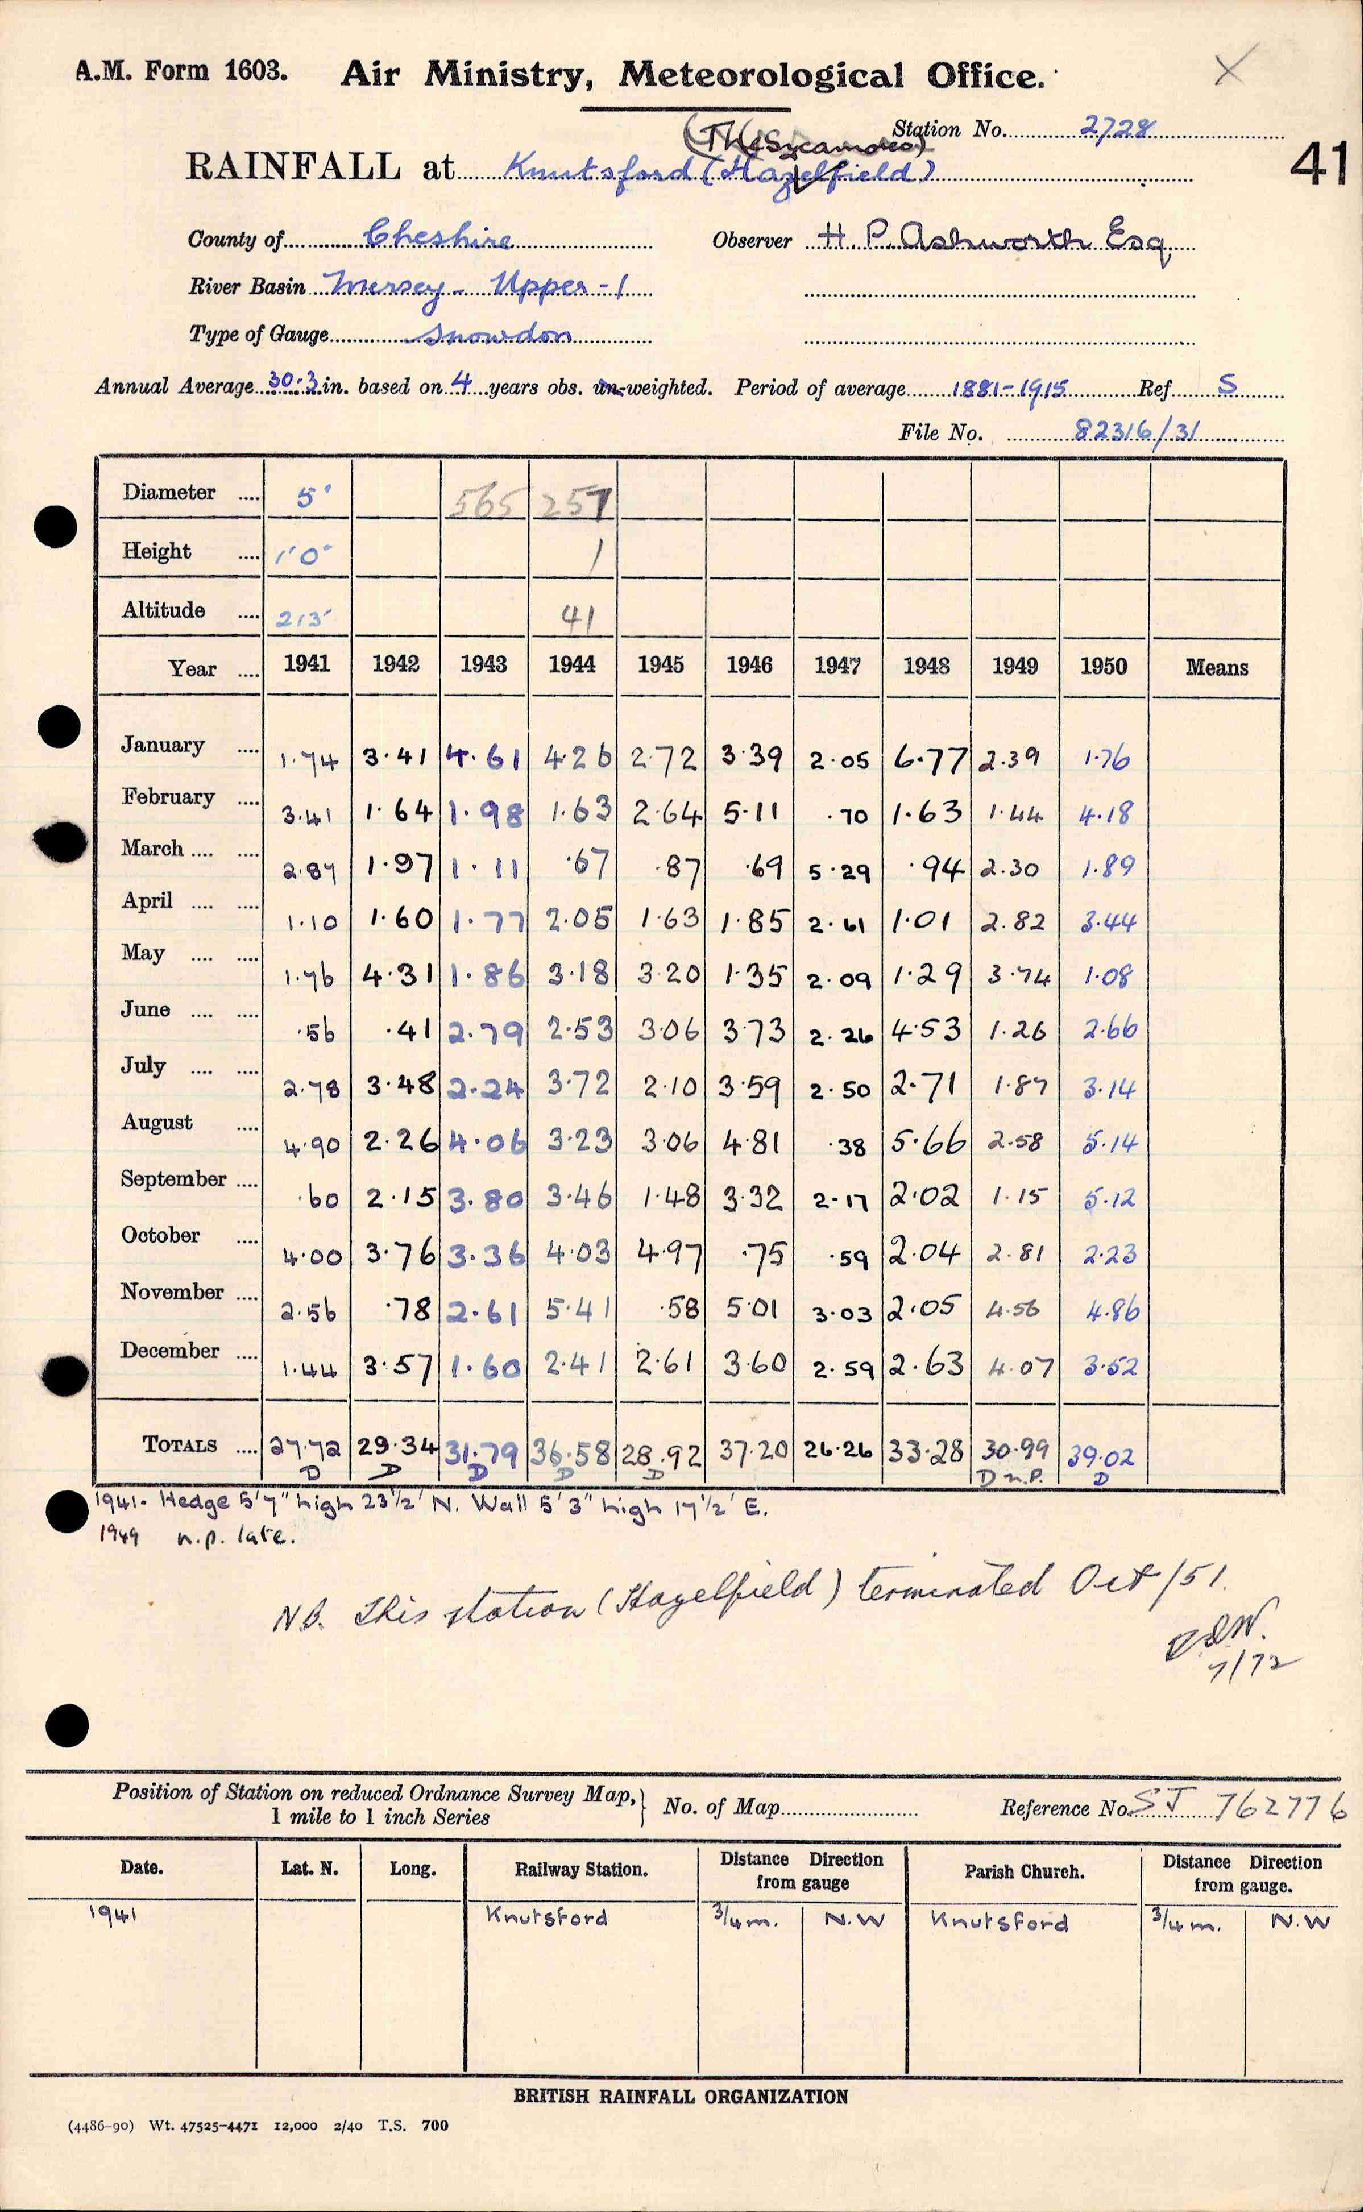 A.M. Form 1603. Air Ministry, Meteorological Office. X
Station No. 2728
(The Sycamores)
RAINFALL at Knutsford (Hazelfield) 41
County of Cheshire Observer H. P. Ashworth Esq
River Basin Mersey - Upper - 1
Type of Gauge Snowdon
Annual Average 30.3 in. based on 4 years obs. un-weighted. Period of average 1881-1915 Ref S
File No. 82316/31
Diameter .... 5" 565 257
Height .... 1'0" 1
Altitude .... 213' 41
Year .... 1941 1942 1943 1944 1945 1946 1947 1948 1949 1950 Means
January .... 1.74 3.41 4.61 4.26 2.72 3.39 2.05 6.77 2.39 1.76
February .... 3.41 1.64 1.98 1.63 2.64 5.11 .70 1.63 1.44 4.18
March .... .... 2.87 1.97 1.11 .67 .87 .69 5.29 .94 2.30 1.89
April .... .... 1.10 1.60 1.77 2.05 1.63 1.85 2.61 1.01 2.82 3.44
May .... .... 1.76 4.31 1.86 3.18 3.20 1.35 2.09 1.29 3.74 1.08
June .... .... .56 .41 2.79 2.53 3.06 3.73 2.26 4.53 1.26 2.66
July .... .... 2.78 3.48 2.24 3.72 2.10 3.59 2.50 2.71 1.87 3.14
August .... 4.90 2.26 4.06 3.23 3.06 4.81 .38 5.66 2.58 5.14
September .... .60 2.15 3.80 3.46 1.48 3.32 2.17 2.02 1.15 5.12
October .... 4.00 3.76 3.36 4.03 4.97 .75 .59 2.04 2.81 2.23
November .... 2.56 .78 2.61 5.41 .58 5.01 3.03 2.05 4.56 4.86
December .... 1.44 3.57 1.60 2.41 2.61 3.60 2.59 2.63 4.07 3.52
TOTALS .... 27.72 29.34 31.79 36.58 28.92 37.20 26.26 33.28 30.99 39.02
D D D D D D n.p. D
1941. Hedge 5'7" high 23½' N. Wall 5'3" high 17½' E.
1949 n.p. late.
NB. This station (Hazelfield) terminated Oct/51.
7/72
Position of Station on reduced Ordnance Survey Map, } No. of Map Reference No. SJ 762776
1 mile to 1 inch Series
Date. Lat. N. Long. Railway Station. Distance from gauge Direction Parish Church. Distance from gauge. Direction
1941 Knutsford ¾ m. N.W Knutsford ¾ m. N.W
BRITISH RAINFALL ORGANIZATION
(4486-90) Wt. 47525-4471 12,000 2/40 T.S. 700